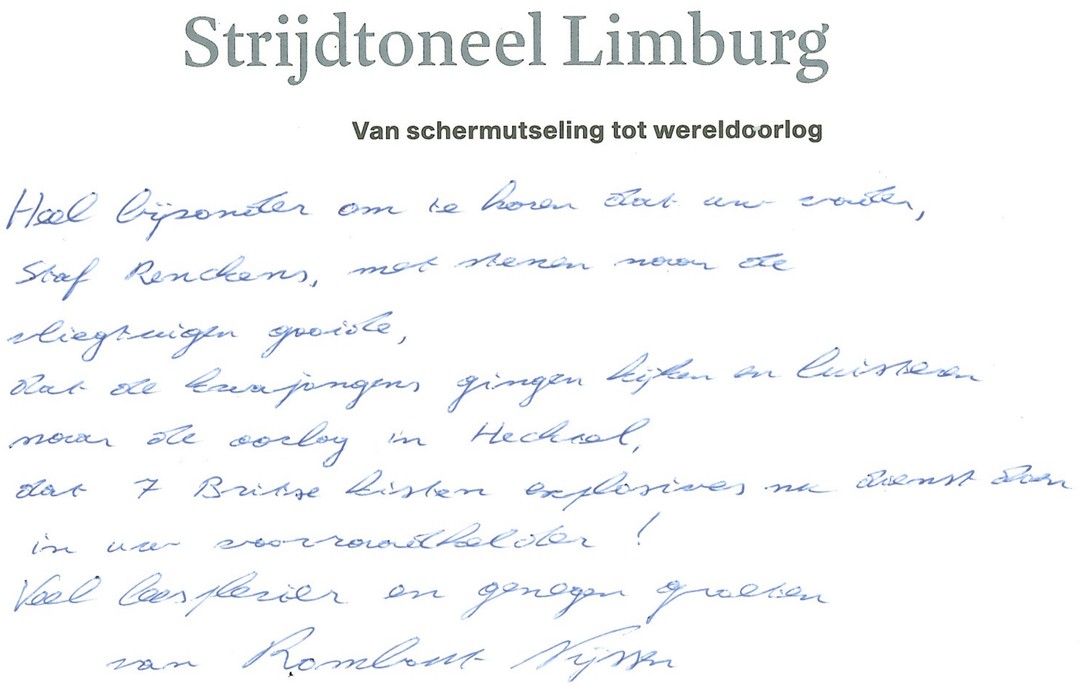 Strijdtoneel Limburg
Van schermutseling tot wereldoorlog
Heel bijzonder om te horen dat uw vader,
Staf Renckens, met stenen naar de
vliegtuigen gooide,
dat de kwajongens gingen kijken en luisteren
naar de oorlog in Hechtel,
dat 7 Britse kisten explosives nu dienst doen
in uw voorraadkelder !
Veel leesplezier en genegen groeten
van Rombout Nijssen